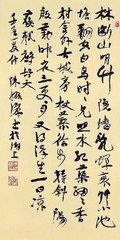 林断山明竹隐墙乱蝉衰草小池
塘翻空白鸟时时见照水红蕖细细香
村舍外古城旁杖藜徐步转斜阳
殷勤昨夜三更雨又得浮生一日
凉